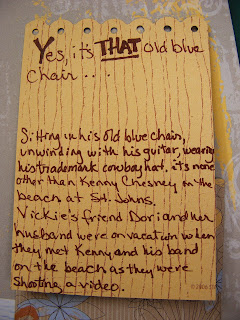 Yes, it's THAT old blue
chair....
Sitting in his old blue chair,
unwinding with his guitar, wearing
his trademark cowboy hat, it's none
other than Kenny Chesney on the
beach at St. Johns.
Vickie's friend Dori and her
husband were on vacation when
they met Kenny and his band
on the beach as they were
shooting a video.